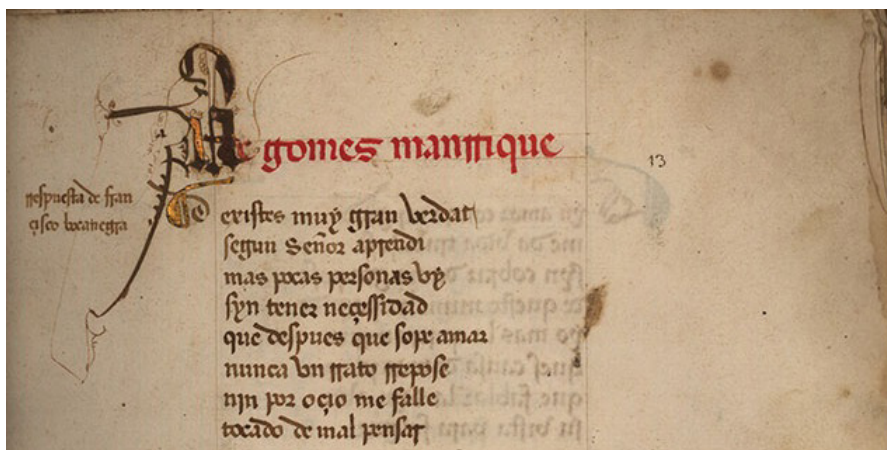 de gomes manrrique
13
rrespuesta de fran
çisco bocanegra
Dexistes muy gran verdat
segun Señor aprendi
mas pocas personas vy
syn tener neçessidad
que despues que sope amar
nunca vn rrato rrepose
nin por oçio me falle
tocado de mal pensar